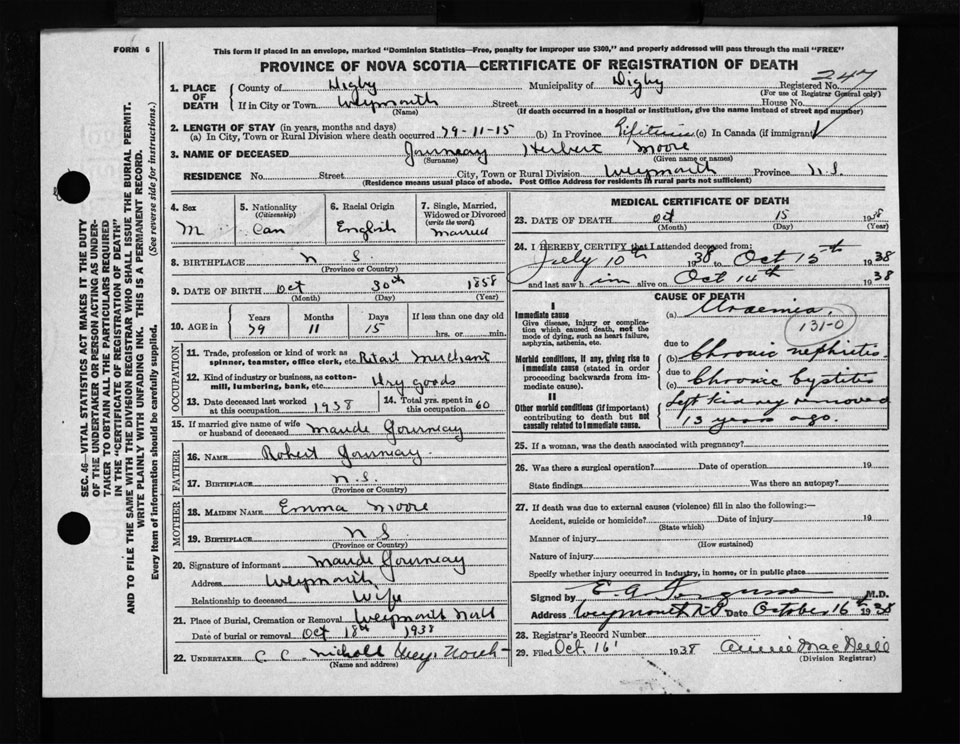 FORM 6
This form if placed in an envelope, marked "Dominion Statistics—Free, penalty for improper use $300," and properly addressed will pass through the mail "FREE"
PROVINCE OF NOVA SCOTIA—CERTIFICATE OF REGISTRATION OF DEATH
247
1. PLACE OF DEATH County of Digby Municipality of Digby Registered No.
(For use of Registrar General only)
If in City or Town Weymouth Street House No.
(Name) (If death occurred in a hospital or institution, give the name instead of street and number)
2. LENGTH OF STAY (in years, months and days)
(a) In City, Town or Rural Division where death occurred 79-11-15 (b) In Province Lifetime (c) In Canada (if immigrant)
3. NAME OF DECEASED Journeay Herbert Moore
(Surname) (Given name or names)
RESIDENCE No. Street City, Town or Rural Division Weymouth Province N.S.
(Residence means usual place of abode. Post Office Address for residents in rural parts not sufficient)
4. Sex M
5. Nationality (Citizenship) Can
6. Racial Origin English
7. Single, Married, Widowed or Divorced (write the word) Married
8. BIRTHPLACE N S.
(Province or Country)
9. DATE OF BIRTH Oct 30th 1858
(Month) (Day) (Year)
10. AGE in Years Months Days If less than one day old
79 11 15 hrs. or min.
OCCUPATION
11. Trade, profession or kind of work as spinner, teamster, office clerk, etc. Retail Merchant
12. Kind of industry or business, as cotton-mill, lumbering, bank, etc. Dry goods
13. Date deceased last worked at this occupation 1938 14. Total yrs. spent in this occupation 60
15. If married give name of wife or husband of deceased Maude Journeay
FATHER
16. NAME Robert Journeay
17. BIRTHPLACE N.S.
(Province or Country)
MOTHER
18. MAIDEN NAME Emma Moore
19. BIRTHPLACE N S
(Province or Country)
20. Signature of informant Maude Journeay
Address Weymouth
Relationship to deceased Wife
21. Place of Burial, Cremation or Removal Weymouth North
Date of burial or removal Oct 18th 1938
22. UNDERTAKER C. C. Nichols Wey. North
(Name and address)
MEDICAL CERTIFICATE OF DEATH
23. DATE OF DEATH Oct 15 1938
(Month) (Day) (Year)
24. I HEREBY CERTIFY that I attended deceased from:
July 10th 1938 to Oct 15th 1938
and last saw him alive on Oct 14th 1938
CAUSE OF DEATH
I
Immediate cause
Give disease, injury or complication which caused death, not the mode of dying, such as heart failure, asphyxia, asthenia, etc.
(a) Uraemia
131-0
due to
Morbid conditions, if any, giving rise to immediate cause (stated in order proceeding backwards from immediate cause).
(b) Chronic nephritis
due to
(c) Chronic Cystitis
II
Other morbid conditions (if important) contributing to death but not causally related to immediate cause.
Left kidney removed
13 years ago.
25. If a woman, was the death associated with pregnancy?
26. Was there a surgical operation? Date of operation 19
State findings Was there an autopsy?
27. If death was due to external causes (violence) fill in also the following:—
Accident, suicide or homicide? Date of injury 19
(State which)
Manner of injury
(How sustained)
Nature of injury
Specify whether injury occurred in industry, in home, or in public place
Signed by E A M.D.
Address Weymouth N.S Date October 16th 1938
28. Registrar's Record Number
29. Filed Oct. 16 1938 Annie MacNeill
(Division Registrar)
SEC. 46—VITAL STATISTICS ACT MAKES IT THE DUTY
OF THE UNDERTAKER OR PERSON ACTING AS UNDERTAKER TO OBTAIN ALL THE PARTICULARS REQUIRED
IN THE "CERTIFICATE OF REGISTRATION OF DEATH"
AND TO FILE THE SAME WITH THE DIVISION REGISTRAR WHO SHALL ISSUE THE BURIAL PERMIT.
WRITE PLAINLY WITH UNFADING INK. THIS IS A PERMANENT RECORD.
Every item of information should be carefully supplied. (See reverse side for instructions.)